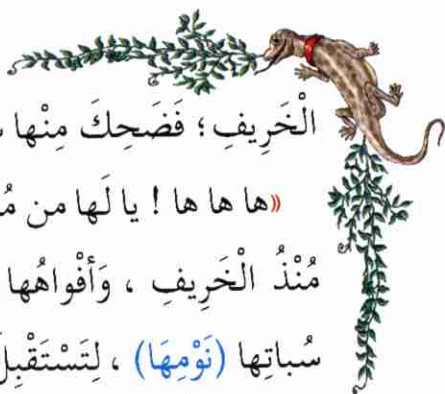 الْخَرِيفِ؛ فَضَحِكَ مِنْها
«ها ها ها ! يا لَها من
مُنْذُ الْخَرِيفِ ، وَأَفْواهُها
سُباتِها (نَوْمِهَا) ، لِتَسْتَقْبِلَ